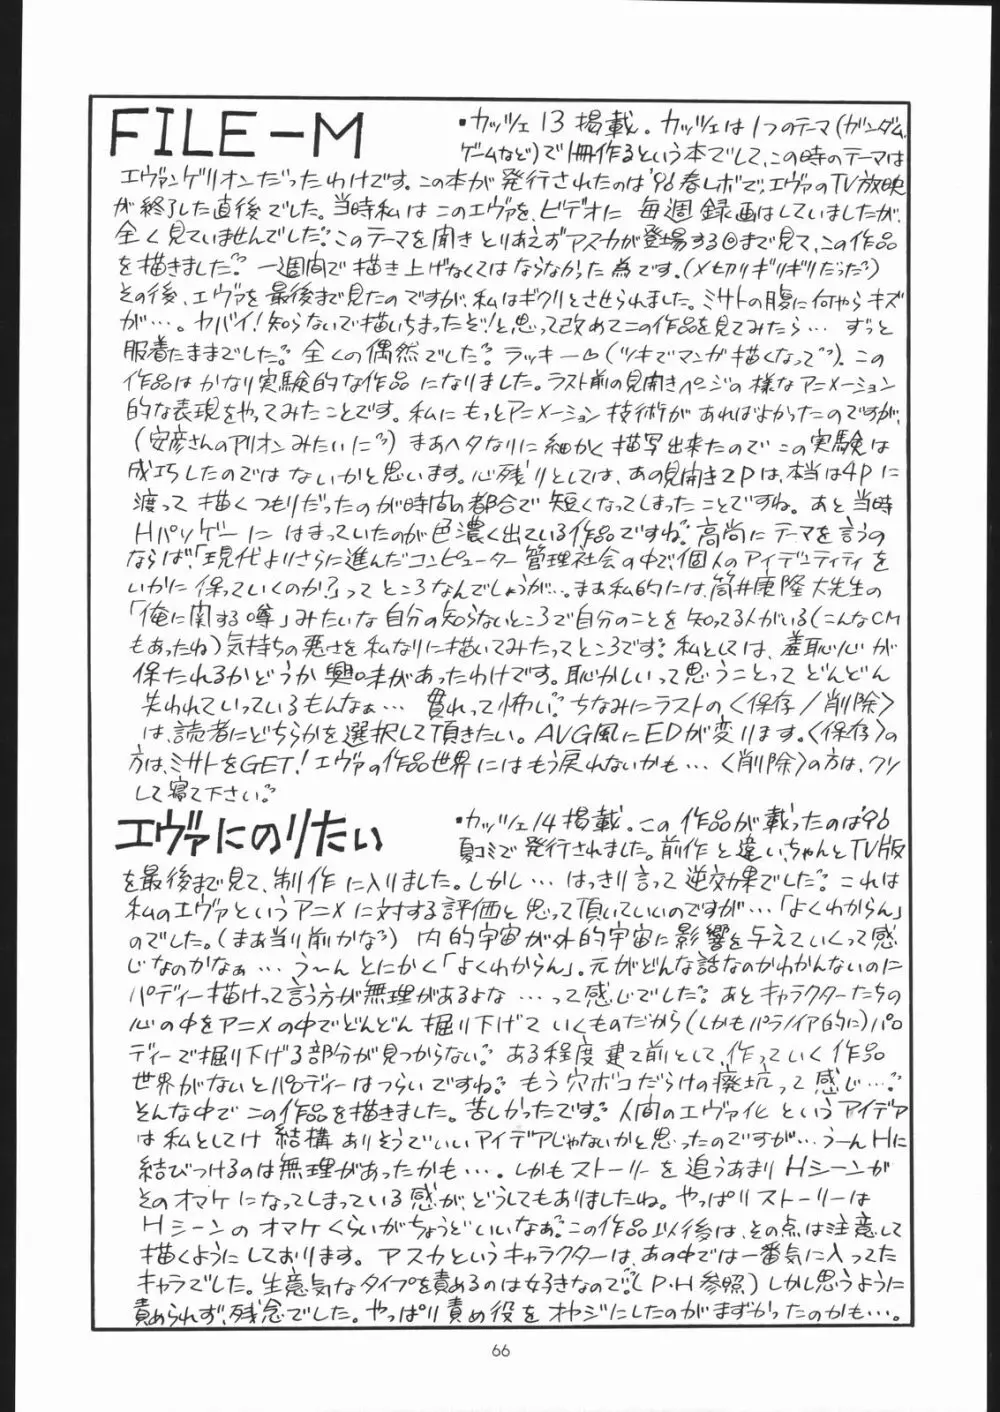 FILE-M
・カッツェ13掲載。カッツェは1つのテーマ(ガンダム、
ゲームなど)で1冊作るという本でして、この時のテーマは
エヴァンゲリオンだったわけです。この本が発行されたのは'96春レボで、エヴァのTV放映
が終了した直後でした。当時私はこのエヴァを、ビデオに毎週録画はしていましたが、
全く見ていませんでした。このテーマを聞きとりあえずアスカが登場する回まで見て、この作品
を描きました。一週間で描き上げなくてはならなかった為です。(〆切りギリギリだった)
その後、エヴァを最後まで見たのですが、私はギクリとさせられました。ミサトの腹に何やらキズ
が…。ヤバイ!知らないで描いちまったぞ!と思って改めてこの作品を見てみたら…ずっと
服着たままでした。全くの偶然でした。ラッキー♡(ツキでマンガ描くなって)。この
作品はかなり実験的な作品になりました。ラスト前の見開きページの様なアニメーション
的な表現をやってみたことです。私にもっとアニメーション技術があればよかったのですが、
(安彦さんのアリオンみたいに)まあヘタなりに細かく描写出来たのでこの実験は
成巧したのではないかと思います。心残りとしては、あの見開き2Pは、本当は4Pに
渡って描くつもりだったのが時間の都合で短くなってしまったことですね。あと当時
Hパソゲーにはまっていたのが色濃く出ている作品ですね。高尚にテーマを言うの
ならば、「現代よりさらに進んだコンピューター管理社会の中で、個人のアイデンティティを
いかに保っていくのか?」ってところなんでしょうが…。まあ私的には、筒井康隆大先生の
「俺に関する噂」みたいな自分の知らないところで自分のことを知ってる人がいる(こんなCM
もあったね)気持ちの悪さを私なりに描いてみたってところです。私としては、羞恥心が
保たれるかどうか興味があったわけです。恥かしいって思うことってどんどん
失われていっているもんなぁ…慣れって怖い。ちなみにラストの〈保存/削除〉
は、読者にどちらかを選択して頂きたい。AVG風にEDが変ります。〈保存〉の
方は、ミサトをGET!エヴァの作品世界にはもう戻れないかも…〈削除〉の方は、クソ
して寝て下さい。
エヴァにのりたい
・カッツェ14掲載。この作品が載ったのは'96
夏コミで発行されました。前作と違い、ちゃんとTV版
を最後まで見て、制作に入りました。しかし…はっきり言って逆効果でした。これは
私のエヴァというアニメに対する評価と思って頂いていいのですが…「よくわからん」
のでした。(まあ当り前かな)内的宇宙が外的宇宙に影響を与えていくって感
じなのかなぁ…う〜んとにかく「よくわからん」。元がどんな話なのかわかんないのに
パロディー描けって言う方が無理があるよな…って感じでした。あとキャラクターたちの
心の中をアニメの中でどんどん掘り下げていくものだから(しかもパラノイア的に)パロ
ディーで掘り下げる部分が見つからない。ある程度建て前として、作っていく作品
世界がないとパロディーはつらいですね。もう穴ボコだらけの廃坑って感じ…。
そんな中でこの作品を描きました。苦しかったです。人間のエヴァ化というアイデア
は私としてけ結構ありそうでいいアイデアじゃないかと思ったのですが…うーんHに
結びつけるのは無理があったかも…。しかもストーリーを追うあまりHシーンが
そのオマケになってしまっている感が、どうしてもありましたね。やっぱりストーリーは
Hシーンのオマケくらいがちょうどいいなあ。この作品以後は、その点は注意して
描くようにしております。アスカというキャラクターは、あの中では一番気に入ってた
キャラでした。生意気なタイプを責めるのは好きなので。(P・H参照)しかし思うように
責められず、残念でした。やっぱり責め役をオヤジにしたのがまずかったのかも…。
66